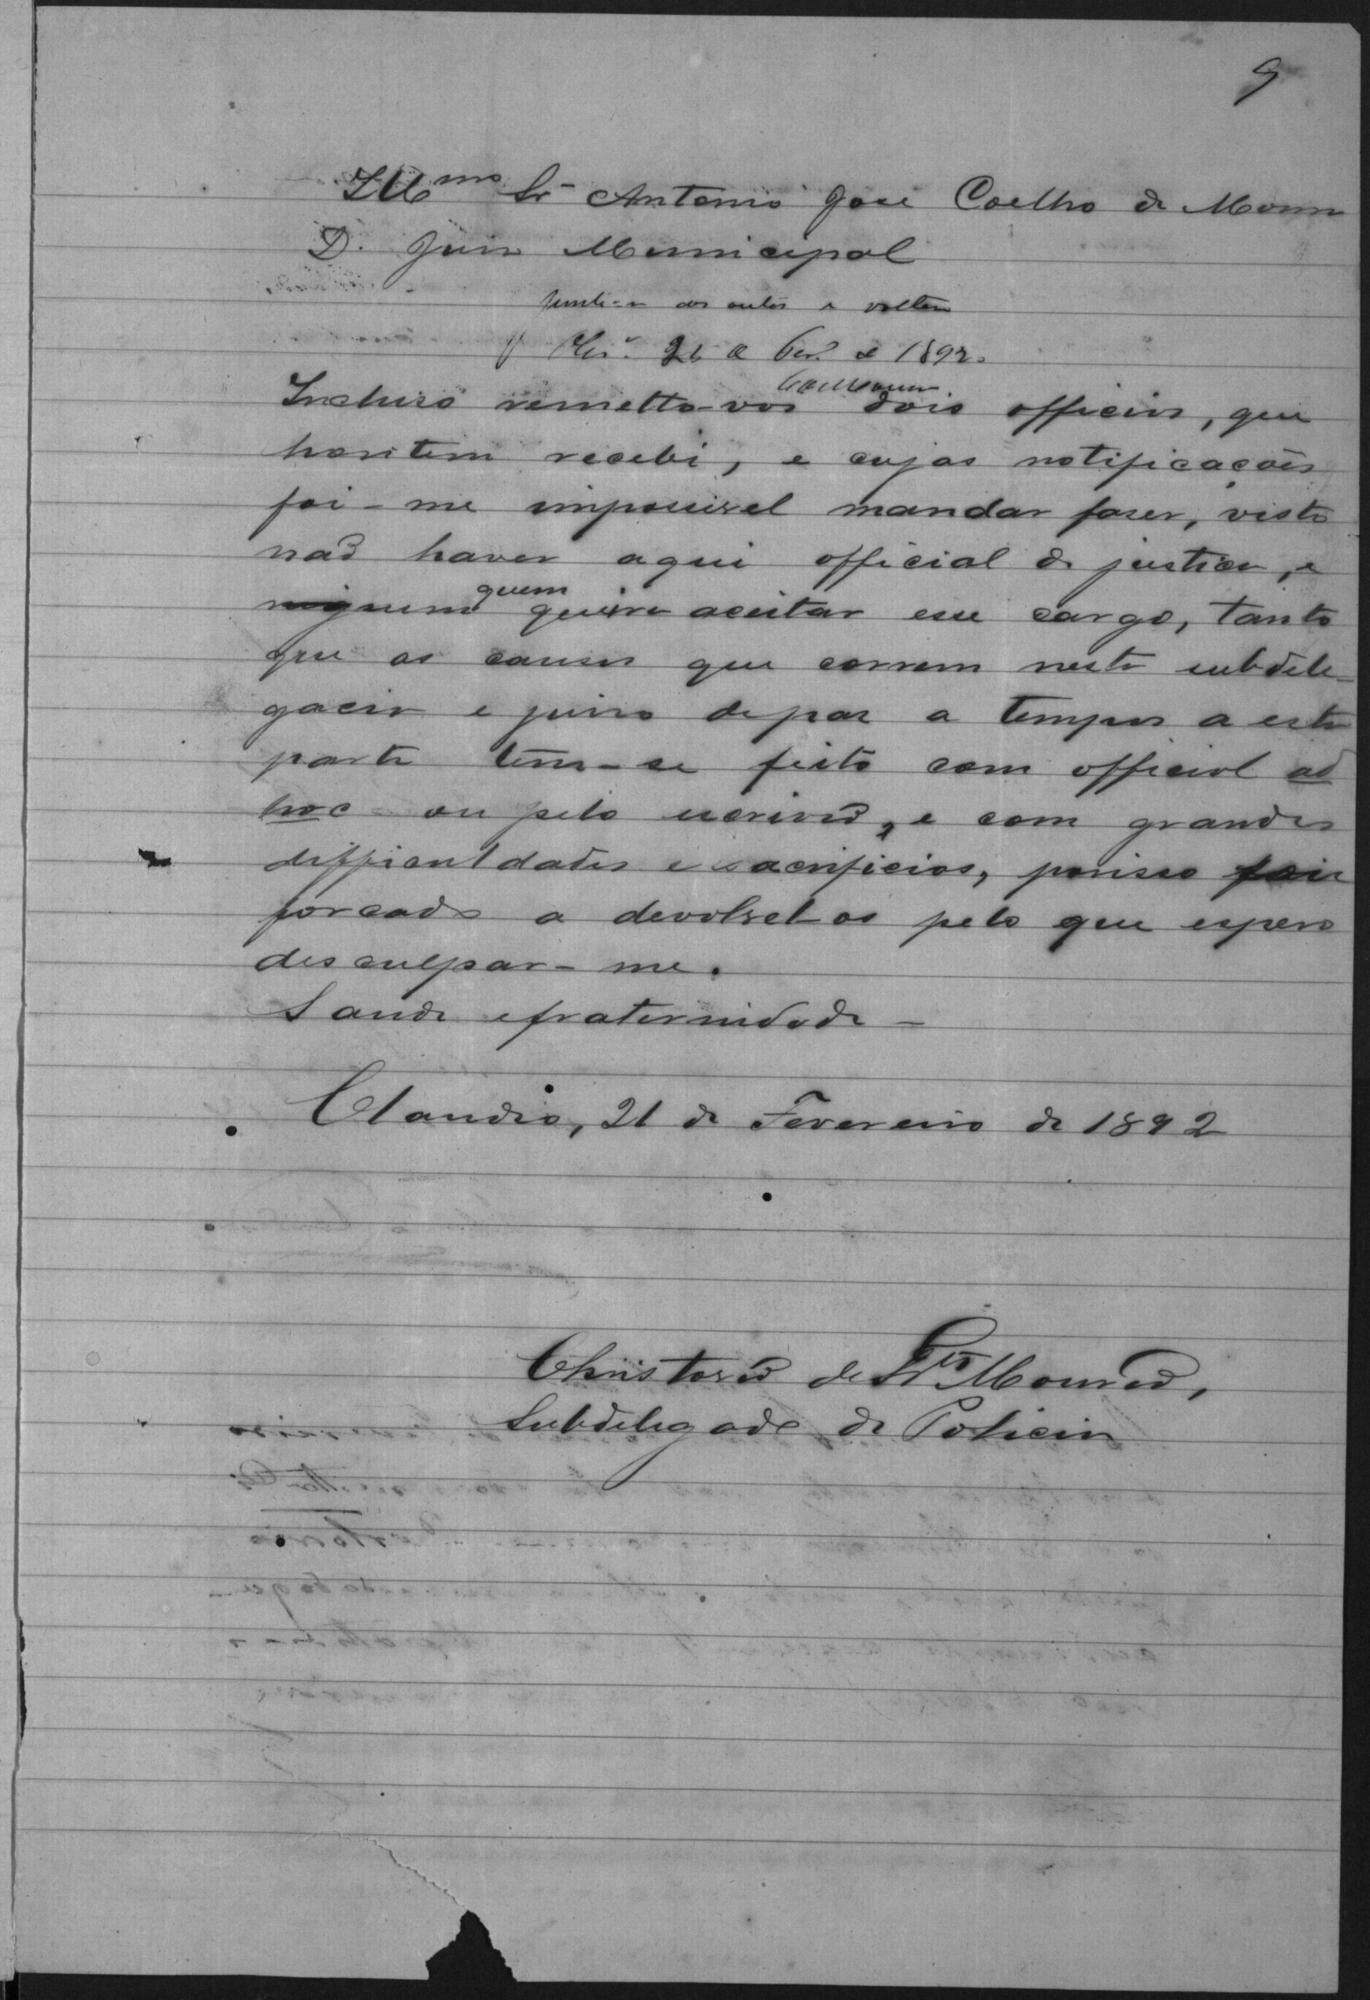 9
Illmo Sr Antonio José Coelho de Moura
D. Juiz Municipal
Junte-se aos autos e voltem
21 de Fevo de 1892.
Incluso remetto-vos dois officios, que
hontem recebi, e cujas notificações
foi-me impossivel mandar faser, visto
não haver aqui official de justica, e
niguem quem queira aceitar esse cargo, tanto
que as causas que correm nesta subdele-
gacia e juiso de pas a tempos a esta
parte têm-se feito com official ad
hoc ou pelo escrivão, e com grandes
difficuldades e sacrificios, porisso foi
forcado a devolvel-os pelo que espero
desculpar-me.
Saude e fraternidade -
Claudio, 21 de Fevereiro de 1892
Christovão de Mourão,
Subdelegado de Policia